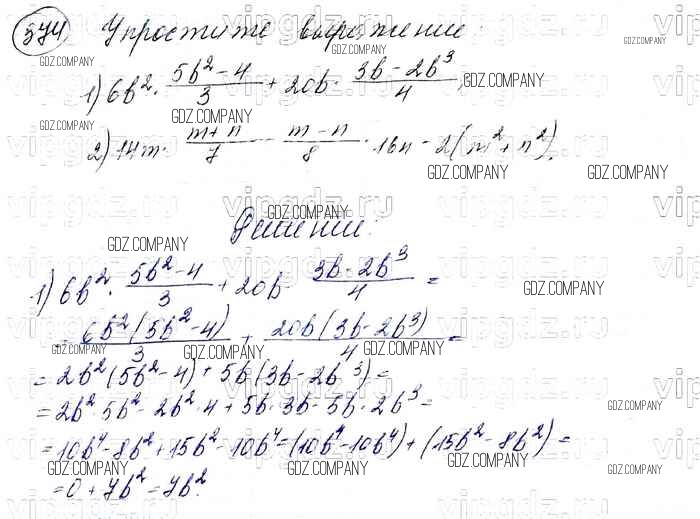 374 Упростите выражение:
1) 6b² · (5b² - 4)/3 + 20b · (3b - 2b³)/4;
2) 14m · (m + n)/7 - (m - n)/8 · 16n - 2(m² + n²).
Решение:
1) 6b² · (5b² - 4)/3 + 20b · (3b - 2b³)/4 =
= 6b²(5b² - 4)/3 + 20b(3b - 2b³)/4 =
= 2b²(5b² - 4) + 5b(3b - 2b³) =
= 2b² · 5b² - 2b² · 4 + 5b · 3b - 5b · 2b³ =
= 10b⁴ - 8b² + 15b² - 10b⁴ = (10b⁴ - 10b⁴) + (15b² - 8b²) =
= 0 + 7b² = 7b².
vipgdz.ru
GDZ.COMPANY